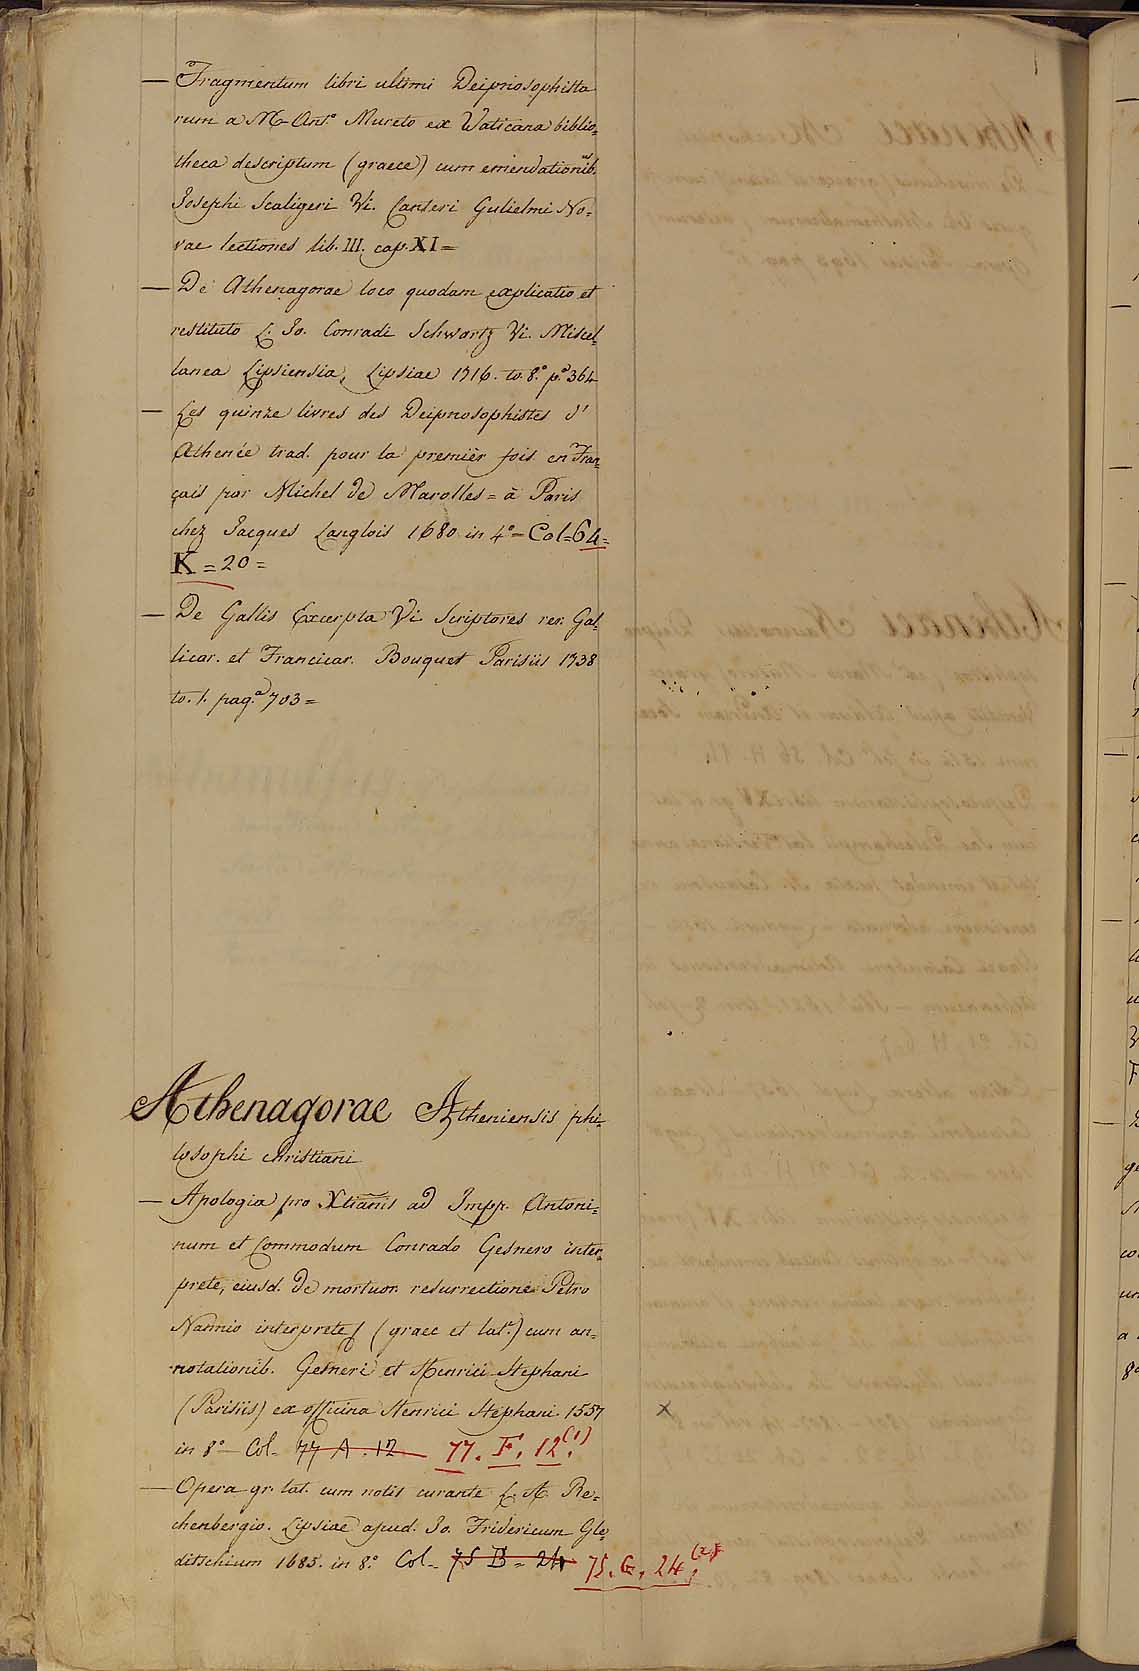 — Fragmentum libri ultimi Deipnosophista
rum a M. Ant.º Mureto ex Vaticana biblio=
theca descriptum (graece) cum emendationib.us
Josephi Scaligeri Vi. Canteri Gulielmi No=
vae lectiones lib. III. cap. XI =
— De Athenagorae loco quodam explicatio et
restituto L. Jo. Conradi Schwartz Vi. Miscel=
lanea Lipsiensia, Lipsiae 1716. to. 8.º p.ª 364
— Les quinze livres des Deipnosophistes d'
Athenée trad. pour la premiër fois en Fran=
çais par Michel de Marolles = à Paris
chez Jacques Langlois 1680 in 4.º = Col = 64 =
K = 20 =
— De Gallis Excerpta Vi Scriptores rer. Gal=
licar. et Francicar. Bouquet Parisiis 1738
to. 1. pag.ª 703 =
Athenagorae Atheniensis phi=
losophi christiani
— Apologia pro Xtianis ad Impp. Antoni=
num et Commodum Conrado Gesnero inter=
prete, eiusd. de mortuor. resurrectione Petro
Nannio interprete (graec et lat.e) cum an=
notationib. Gesneri et Henrici Stephani
(Parisiis) ex officina Henrici Stephani. 1557
in 8.º — Col. 77 A. 12 77. F. 12.(1)
— Opera gr. lat. cum notis curante L. A. Re=
chenbergio. Lipsiae apud. Jo. Fridericum Gle=
ditschium 1685. in 8.º Col. 75 B = 24 75. G. 24.(2)